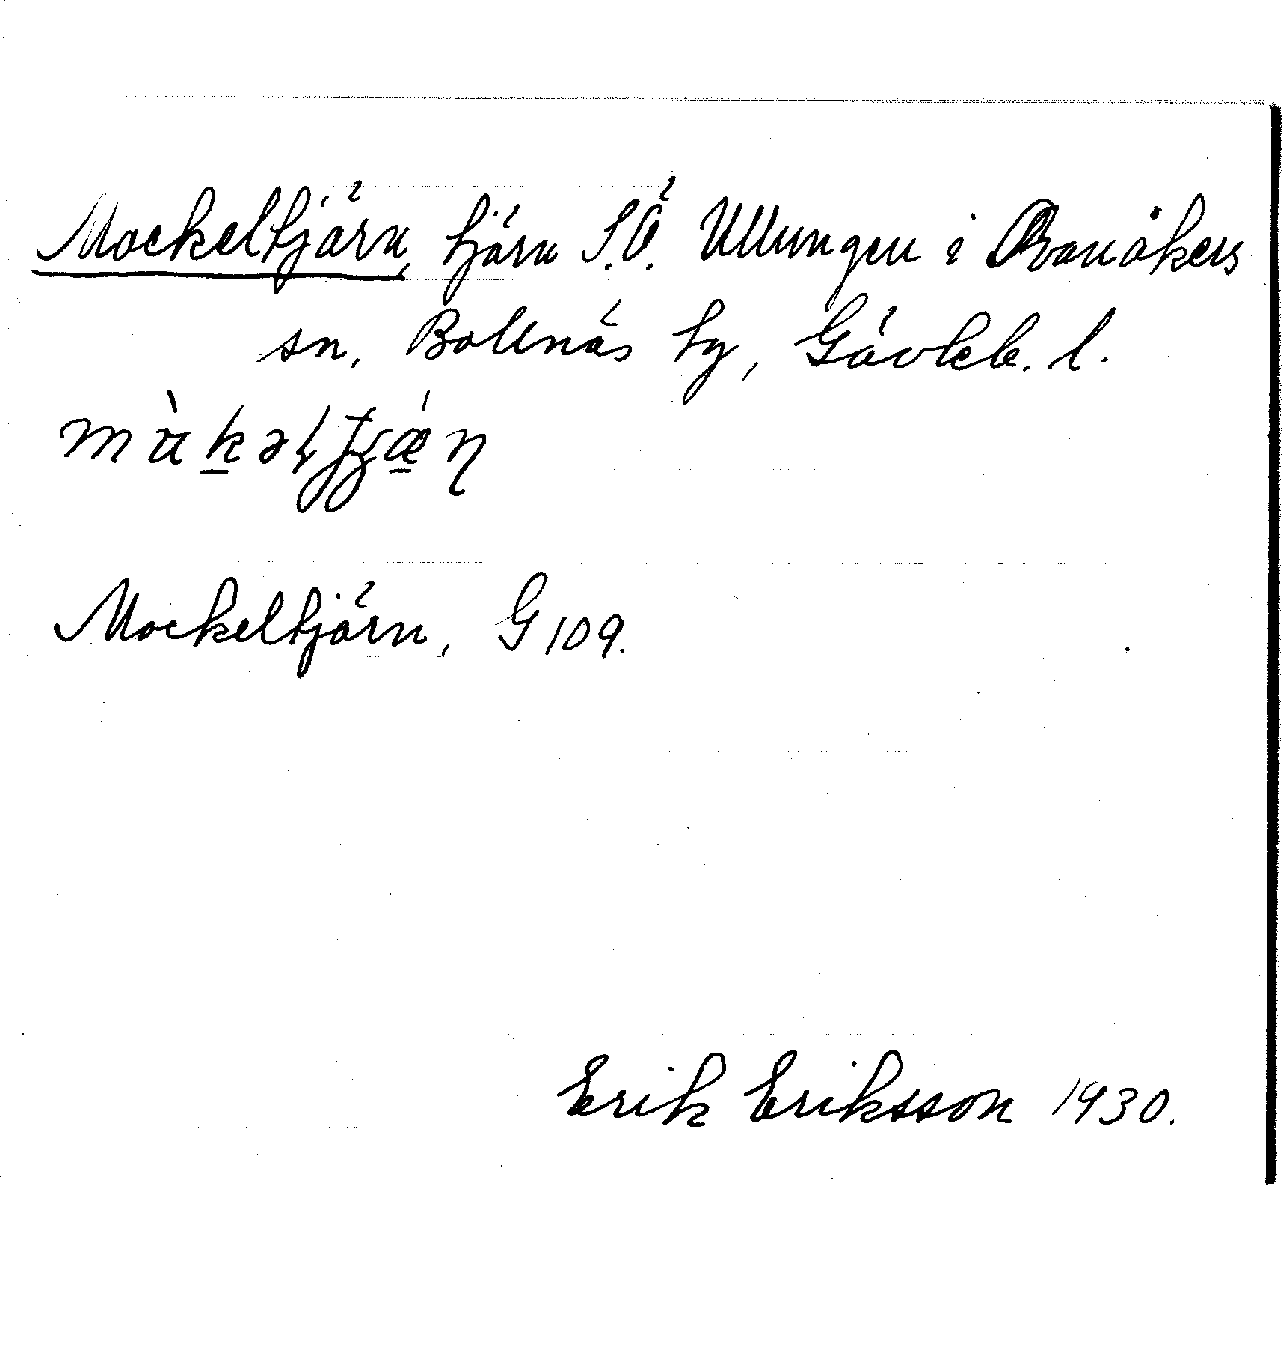 Mockeltjärn, tjärn S.Ö. Ullungen i Ovanåkers
sn, Bollnäs tg, Gävleb. l.
Mockeltjärn, G 109.
Erik Eriksson 1930.